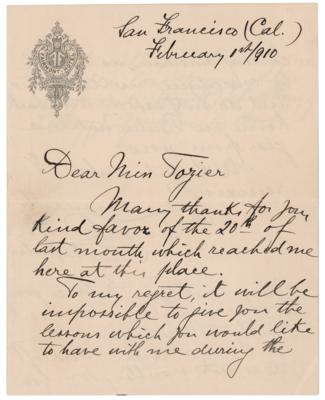 San Francisco (Cal.)
February 1st/910
Dear Miss Tozier
Many thanks for your
Kind favor of the 20th of
last month which reached me
here at this place.
To my regret, it will be
impossible to give you the
lessons which you would like
to have with me during the